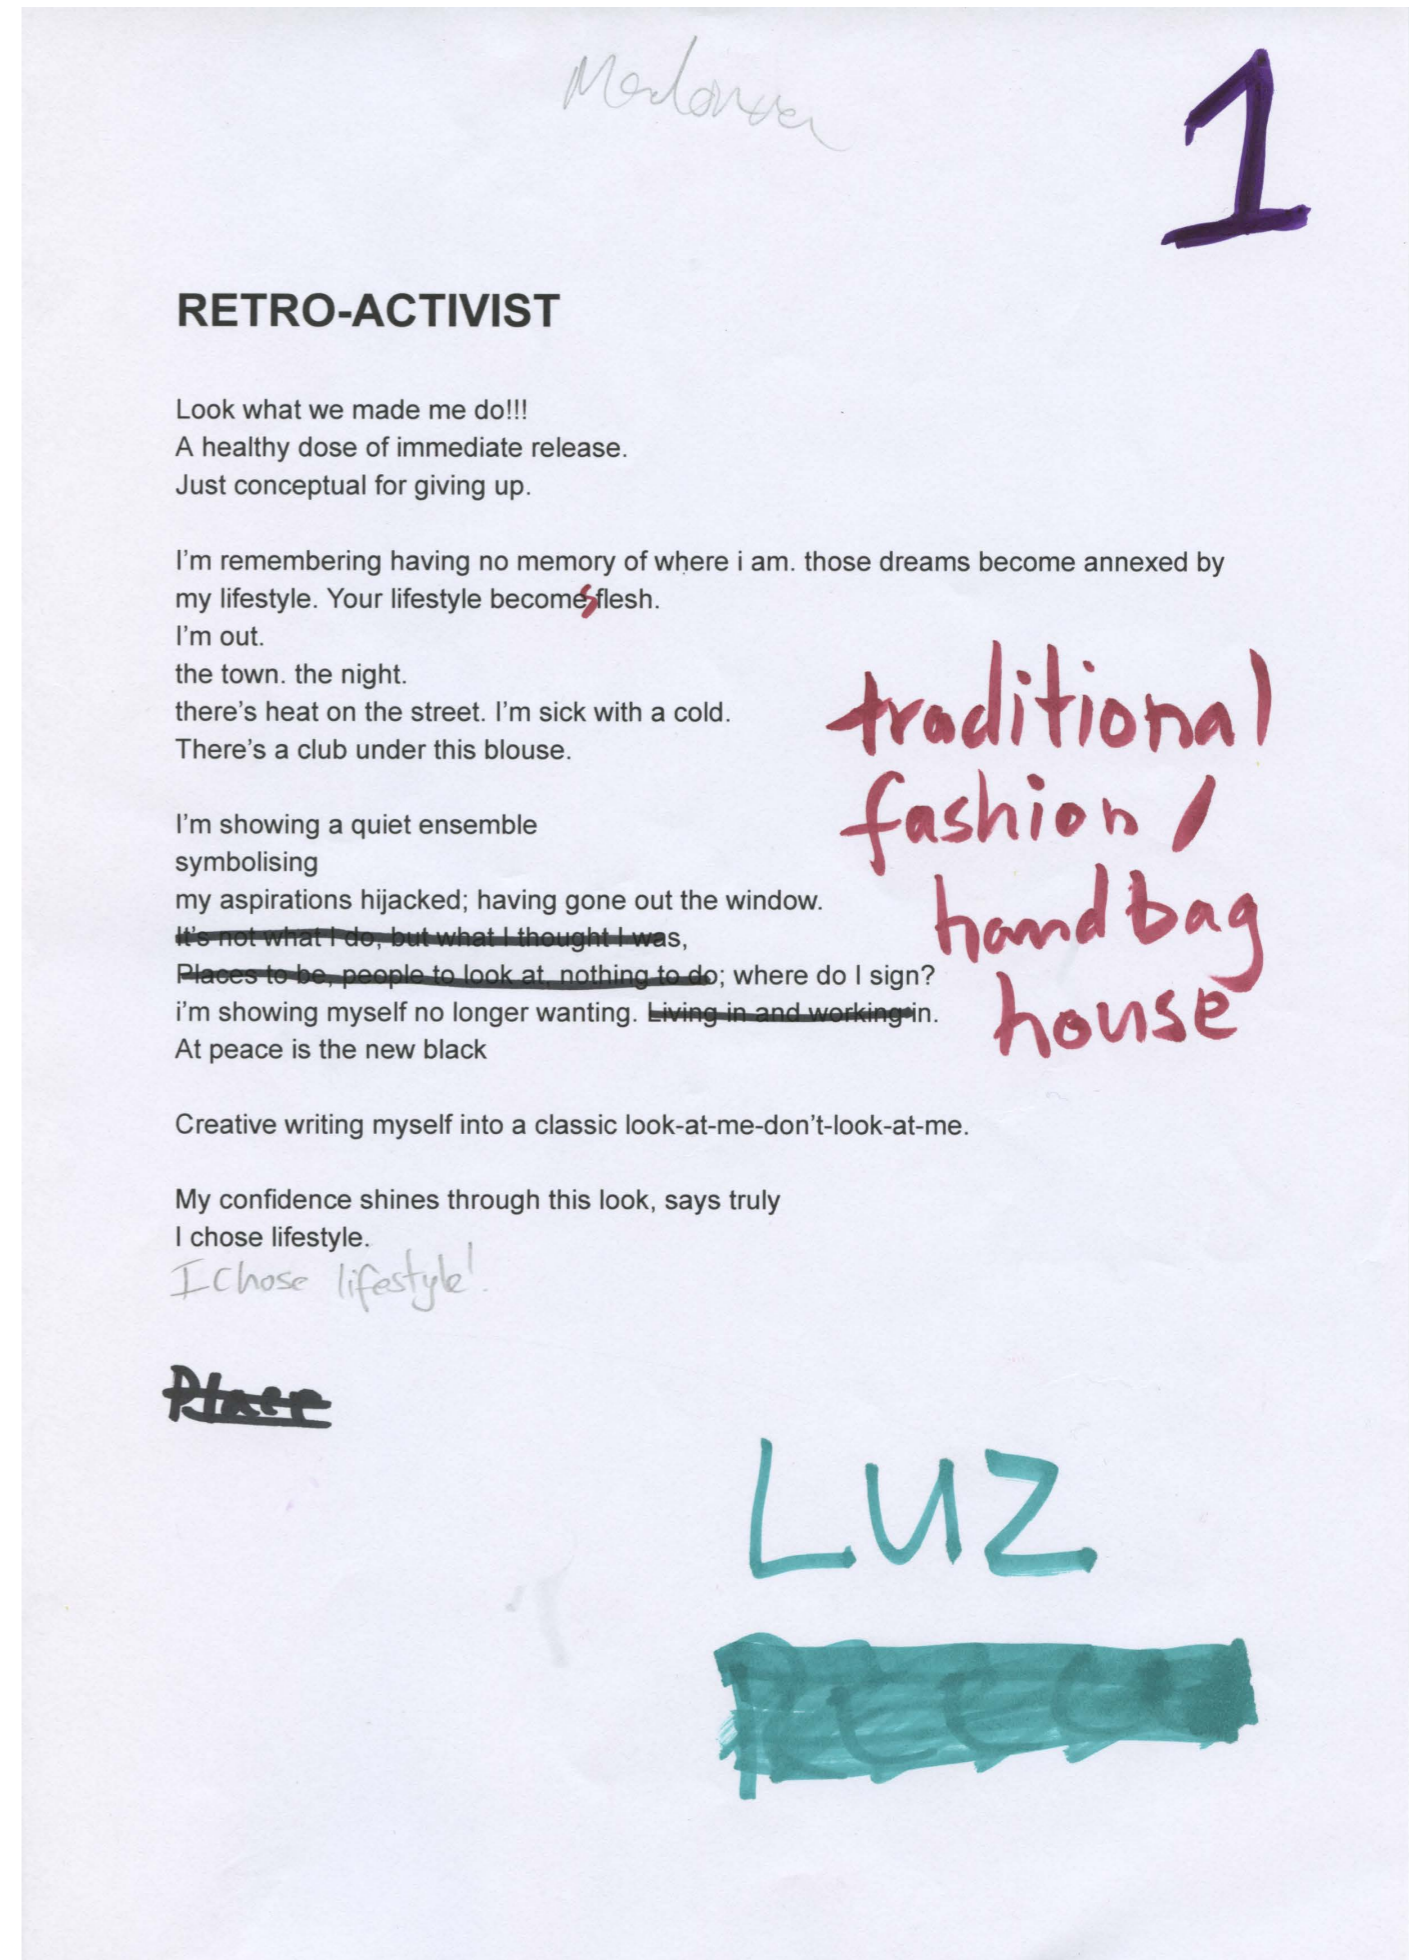 1
RETRO-ACTIVIST
Look what we made me do!!!
A healthy dose of immediate release.
Just conceptual for giving up.
I'm remembering having no memory of where i am. those dreams become annexed by
my lifestyle. Your lifestyle becomes flesh.
I'm out.
the town. the night.
there's heat on the street. I'm sick with a cold.
There's a club under this blouse.
traditional
fashion /
handbag
house
I'm showing a quiet ensemble
symbolising
my aspirations hijacked; having gone out the window.
It's not what I do, but what I thought I was,
Places to be, people to look at, nothing to do; where do I sign?
i'm showing myself no longer wanting. Living in and working in.
At peace is the new black
Creative writing myself into a classic look-at-me-don't-look-at-me.
My confidence shines through this look, says truly
I chose lifestyle.
I chose lifestyle!
Place
LUZ